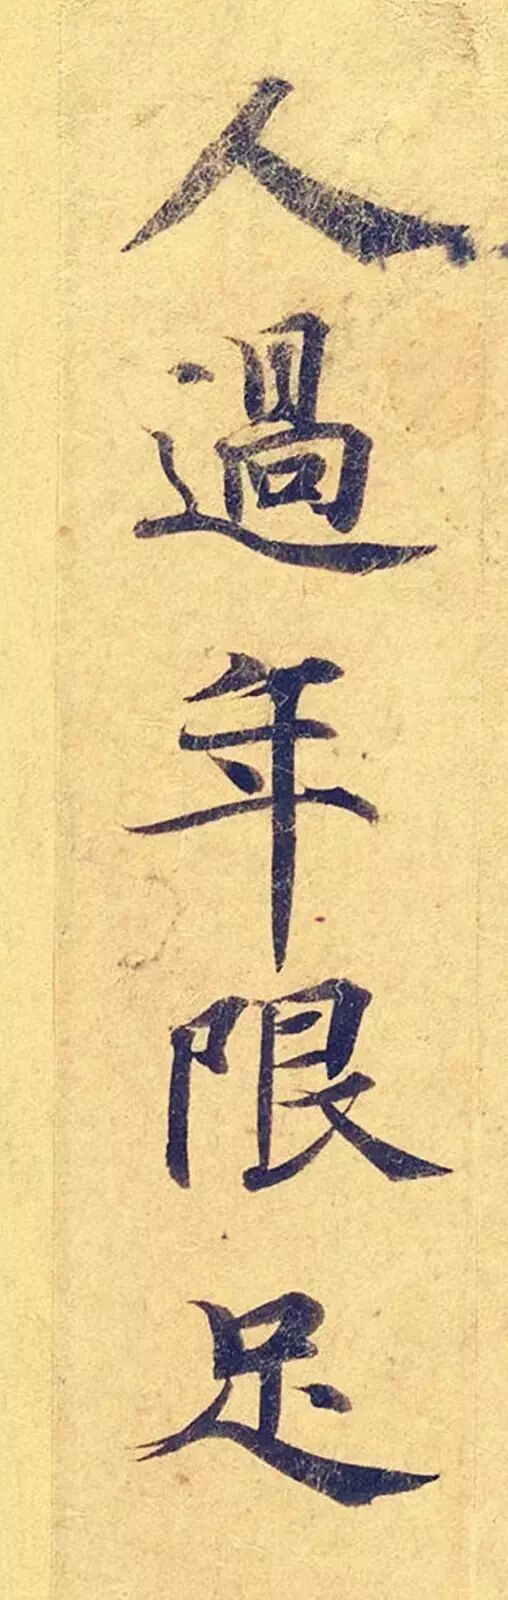 人過年限足